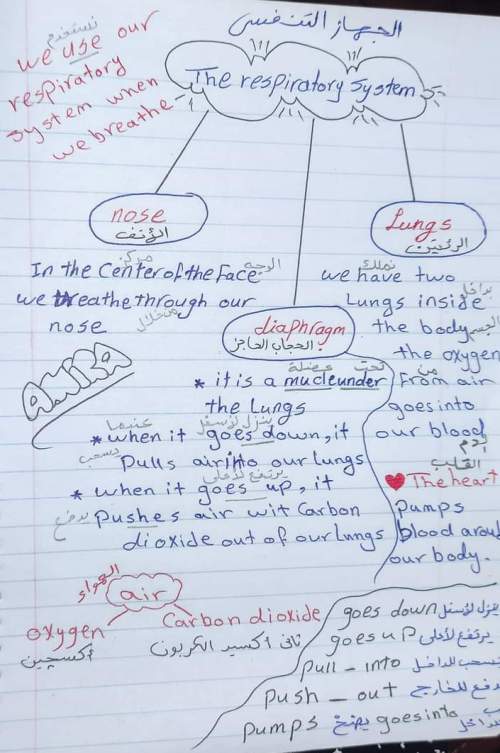 الجهاز التنفسي
نستخدم
we use our
respiratory
system when
we breathe
The respiratory System
nose
الأنف
Lungs
الرئتين
مركز
الوجه
In the Center of the Face
we breathe through our
من خلال
nose
diaphragm
الحجاب الحاجز
تحت عضلة
* it is a mucle under
the Lungs
عندما ينزل لأسفل
* when it goes down, it
يسحب
Pulls air into our lungs
يرتفع لأعلى
* when it goes up, it
يدفع
Pushes air wit Carbon
dioxide out of our lungs
نملك
we have two
بداخل
Lungs inside
the body
الجسم
the oxygen
من
From air
goes into
our blood
الدم
القلب
The heart
pumps
blood arou
our body.
الهواء
air
oxygen
أكسجين
Carbon dioxide
ثاني أكسيد الكربون
goes down ينزل لأسفل
goes up يرتفع لأعلى
pull - into يسحب للداخل
push - out يدفع للخارج
pumps يضخ goes into